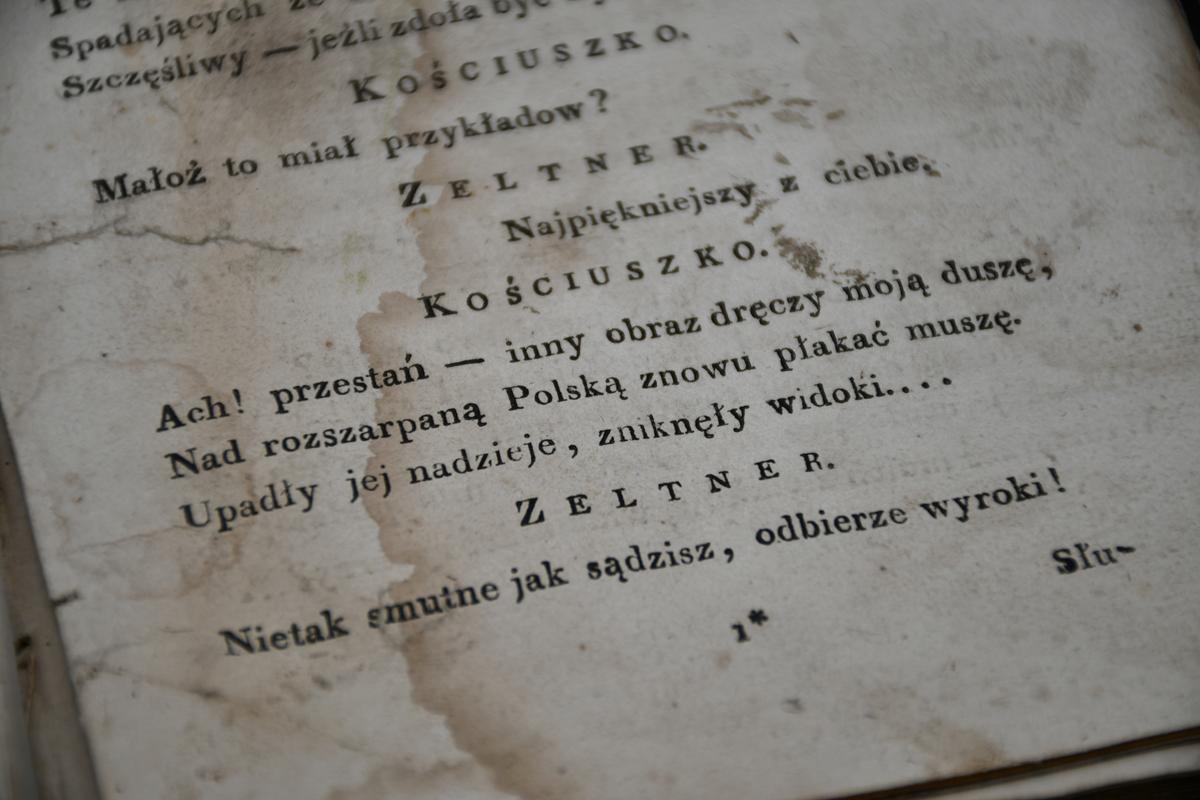 Spadających ze
Szczęśliwy — jeźli zdoła być
KOŚCIUSZKO.
Małoż to miał przykładow?
ZELTNER.
Najpiękniejszy z ciebie.
KOŚCIUSZKO.
Ach! przestań — inny obraz dręczy moją duszę,
Nad rozszarpaną Polską znowu płakać muszę.
Upadły jej nadzieje, zniknęły widoki....
ZELTNER.
Nietak smutne jak sądzisz, odbierze wyroki!
Słu-
1*